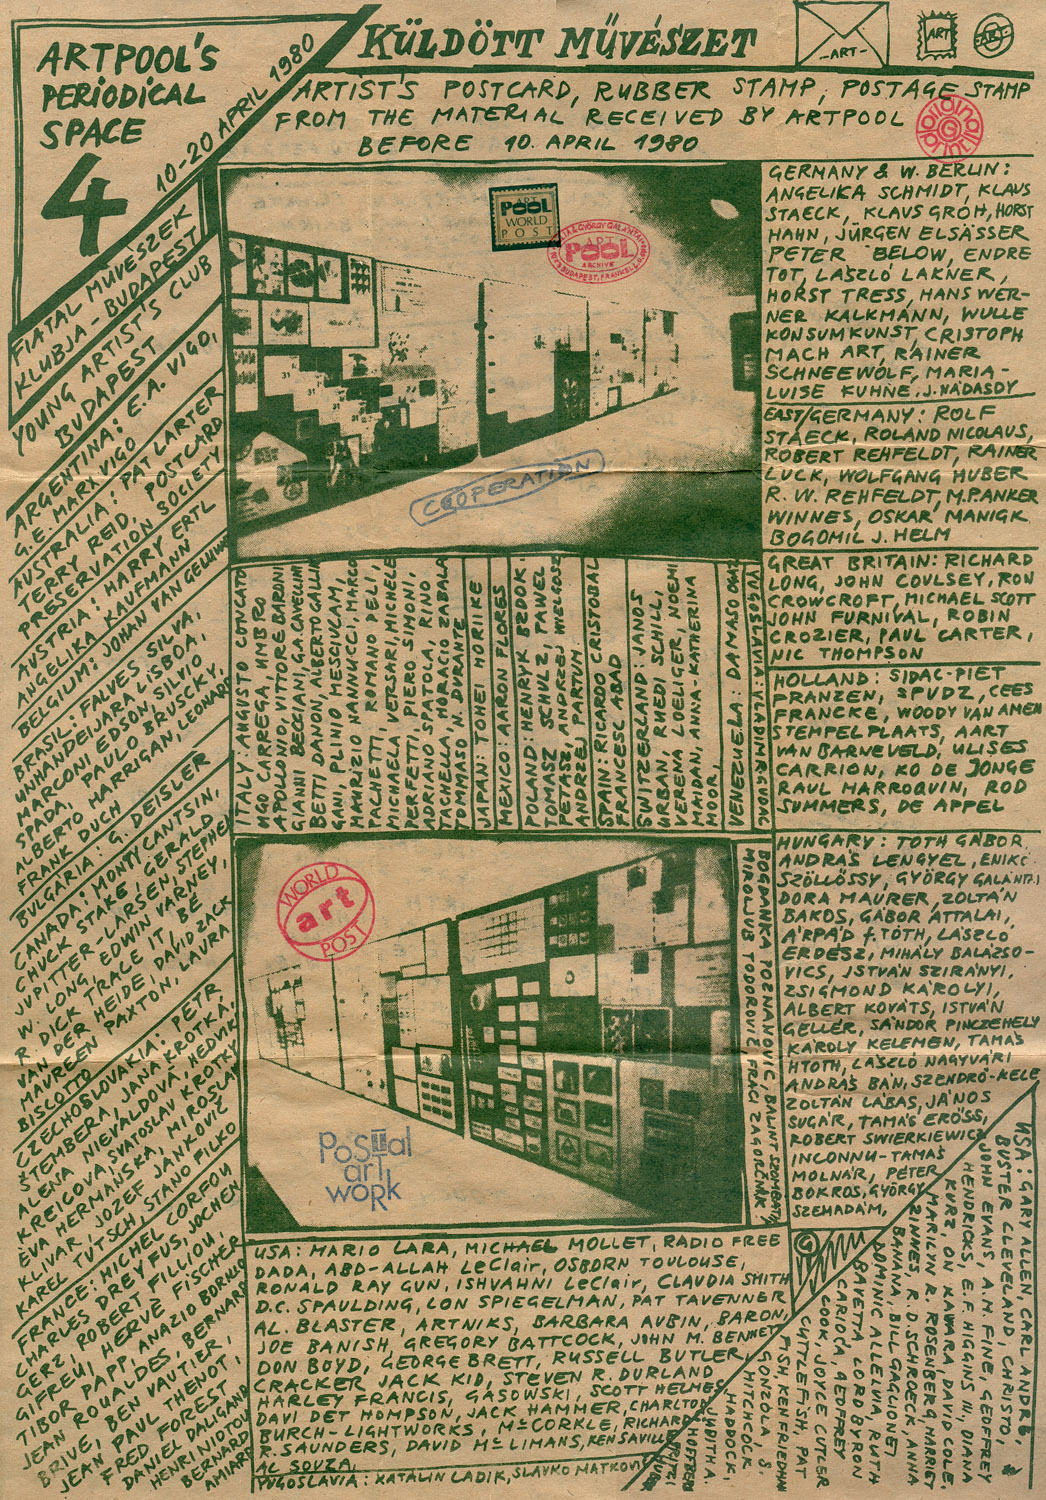 ARTPOOL'S
PERIODICAL
SPACE
4
10-20 APRIL 1980
KÜLDÖTT MŰVÉSZET
-ART-
ART
ART
ARTIST'S POSTCARD, RUBBER STAMP, POSTAGE STAMP
FROM THE MATERIAL RECEIVED BY ARTPOOL
BEFORE 10. APRIL 1980
FIATAL MŰVÉSZEK
KLUBJA - BUDAPEST
YOUNG ARTIST'S CLUB
BUDAPEST
ARGENTINA: E.A. VIGO,
G.E. MARX VIGO
AUSTRALIA: PAT LARTER
TERRY REID, POSTCARD
PRESERVATION SOCIETY
AUSTRIA: HARRY ERTL
ANGELIKA KAUFMANN
BELGIUM: JOHAN VAN GELUWE
BRASIL: FALVES SILVA,
UNHANDEIJARA LISBOA,
MARCONI EDSON, SILVIO
SPADA, PAULO BRUSCKY,
ALBERTO HARRIGAN, LEONARD
FRANK DUCH
BULGARIA: G. DEISLER
CANADA: MONTY CANTSIN,
CHUCK STAKE, GERALD
JUPITTER-LARSEN, STEPHEN
W. LONG, EDWIN VARNEY,
R. DICK TRACE IT, BE
VAN DER HEIDE, DAVID ZACK
MAUREEN PAXTON, LAURA
BISCOTTO
CZECHOSLOVAKIA: PETR
ŠTEMBERA, JANA KROTKÁ,
ALENA NIEVALDOVÁ, HEDVIK
KREICOVA, SVATOSLAV KROTKY
ÉVA HERMANSKA, MIROSLAV
KLIVAR, JOZEF JANKOVIČ
KAREL TUTSCH, STANO FILKO
FRANCE: MICHEL CORFOU
CHARLES DREYFUS, JOCHEN
GERZ, ROBERT FILLIOU,
GIFREU, HERVÉ FISCHER
TIBOR PAPP, ANAZIO BORNILLO
JEAN ROUALDES, BERNARD
BRIVE, BEN VAUTIER,
JEAN PAUL THENOT,
FRED FOREST
DANIEL DALIGAND
HENRI NIOTOU
BERNARD
AMIARD
ART
POOL
WORLD
POST
ART
POOL
ARCHIVE
COOPERATION
GERMANY & W. BERLIN:
ANGELIKA SCHMIDT, KLAUS
STAECK, KLAUS GROH, HORST
HAHN, JÜRGEN ELSÄSSER
PETER BELOW, ENDRE
TOT, LÁSZLÓ LAKNER,
HORST TRESS, HANS WER-
NER KALKMANN, WULLE
KONSUMKUNST, CRISTOPH
MACH ART, RAINER
SCHNEEWOLF, MARIA-
LUISE KUHNE, J. NÁDASDY
EAST/GERMANY: ROLF
STAECK, ROLAND NICOLAUS,
ROBERT REHFELDT, RAINER
LUCK, WOLFGANG HUBER
R. W. REHFELDT, M.P. ANKER
WINNES, OSKAR MANIGK
BOGOMIL J. HELM
GREAT BRITAIN: RICHARD
LONG, JOHN COULSEY, RON
CROWCROFT, MICHAEL SCOTT
JOHN FURNIVAL, ROBIN
CROZIER, PAUL CARTER,
NIC THOMPSON
HOLLAND: SIDAC-PIET
FRANZEN, SPUDZ, CEES
FRANCKE, WOODY VAN AMEN
STEMPELPLAATS, AART
VAN BARNEVELD, ULISES
CARRION, KO DE JONGE
RAUL MARROQUIN, ROD
SUMMERS, DE APPEL
ITALY: AUGUSTO CONCATO
UGO CARREGA, UMBRO
APOLLONIO, VITTORE BARONI
BECCIANI, G.A. CAVELLINI
BETTI DANON, ALBERTO GALLIN
GANI, PLINIO MESCIULAM,
MAURIZIO NANNUCCI, MARCO
PACHETTI, ROMANO PELI,
MICHAELA VERSARI, MICHELE
PERFETTI, PIERO SIMONI,
ADRIANO SPATOLA, RINO
TACHELLA, HORACIO ZABALA
TOMMASO, N. DURANTE
JAPAN: TOHEI HORIIKE
MEXICO: AARON FLORES
POLAND: HENRYK BZDOK,
TOMASZ SCHULZ, PAWEL
PETASZ, ANDRZEJ WIELGOSZ
ANDRZEJ PARTUM
SPAIN: RICARDO CRISTOBAL
FRANCESC ABAD
SWITZERLAND: JANOS
URBAN, RHEDI SCHILL,
VERENA LOELIGER, NOEMI
MAIDAN, ANNA-KATHERINA
MOOR,
VENEZUELA: DAMASO OGAZ
YUGOSLAVIA VLADIMIR GUDAC
BOGDANKA POZNANOVIC, BALINT SZOMBATHY
MIROLJUB TODOROVIĆ FRACI ZAGORIČNIK
WORLD
art
POST
Postal
art
work
HUNGARY: TÓTH GÁBOR
ANDRÁS LENGYEL, ENIKŐ
SZÖLLŐSSY, GYÖRGY GALÁNTAI
DORA MAURER, ZOLTÁN
BAKOS, GÁBOR ATTALAI,
ÁRPÁD f. TÓTH, LÁSZLÓ
ERDÉSZ, MIHÁLY BALÁZSO-
VICS, ISTVÁN SZIRÁNYI,
ZSIGMOND KÁROLYI,
ALBERT KOVÁTS, ISTVÁN
GELLÉR, SÁNDOR PINCZEHELY
KÁROLY KELEMEN, TAMÁS
HTOTH, LÁSZLÓ NAGYVÁRI
ANDRÁS BÁN, SZENDRŐ-KELE
ZOLTÁN LÁBAS, JÁNOS
SUGÁR, TAMÁS ERŐSS,
ROBERT SWIERKIEWICZ
INCONNU-TAMÁS
MOLNÁR, PÉTER
BOKROS, GYÖRGY
SZEHADÁM,
USA: MARIO LARA, MICHAEL MOLLET, RADIO FREE
DADA, ABD-ALLAH LeClair, OSBORN TOULOUSE,
RONALD RAY GUN, ISHVAHNI LeClair, CLAUDIA SMITH
D.C. SPAULDING, LON SPIEGELMAN, PAT TAVENNER
AL. BLASTER, ARTNIKS, BARBARA AUBIN, BARON,
JOE BANISH, GREGORY BATTCOCK, JOHN M. BENNET
DON BOYD, GEORGE BRETT, RUSSELL BUTLER,
CRACKER JACK KID, STEVEN R. DURLAND
HARLEY FRANCIS, GASOWSKI, SCOTT HELMES
DAVI DET HOMPSON, JACK HAMMER, CHARLTON
BURCH-LIGHTWORKS, McCORKLE, RICHARD
R. SAUNDERS, DAVID Mc LIMANS, KEN SAVILLE
AL SOUZA,
YUGOSLAVIA: KATALIN LADIK, SLAVKO MATKOVIĆ
USA: GARY ALLEN, CARL ANDRE,
BUSTER CLEVELAND, CHRISTO,
JOHN EVANS, A.M. FINE, GEOFFREY
HENDRICKS, E.F. HIGGINS III, DIANA
KURZ, ON KAWARA, DAVID COLE,
MARILYN R. ROSENBERG, HARRIET
ZINNES, R.D. SCHROECK, ANNA
BANANA, BILL GAGLIONE,
DOMINIC ALLELUIA, RUTH
BAVETTA, LORD BYRON
CARIOCA, GEOFFREY
COOK, JOYCE CUTLER
CUTTLEFISH, PAT
FISH, KEN FRIEDMAN
GONZOLA, S.
HITCHCOCK
HADDOCK,
JUDITH A.
HOFFBERG